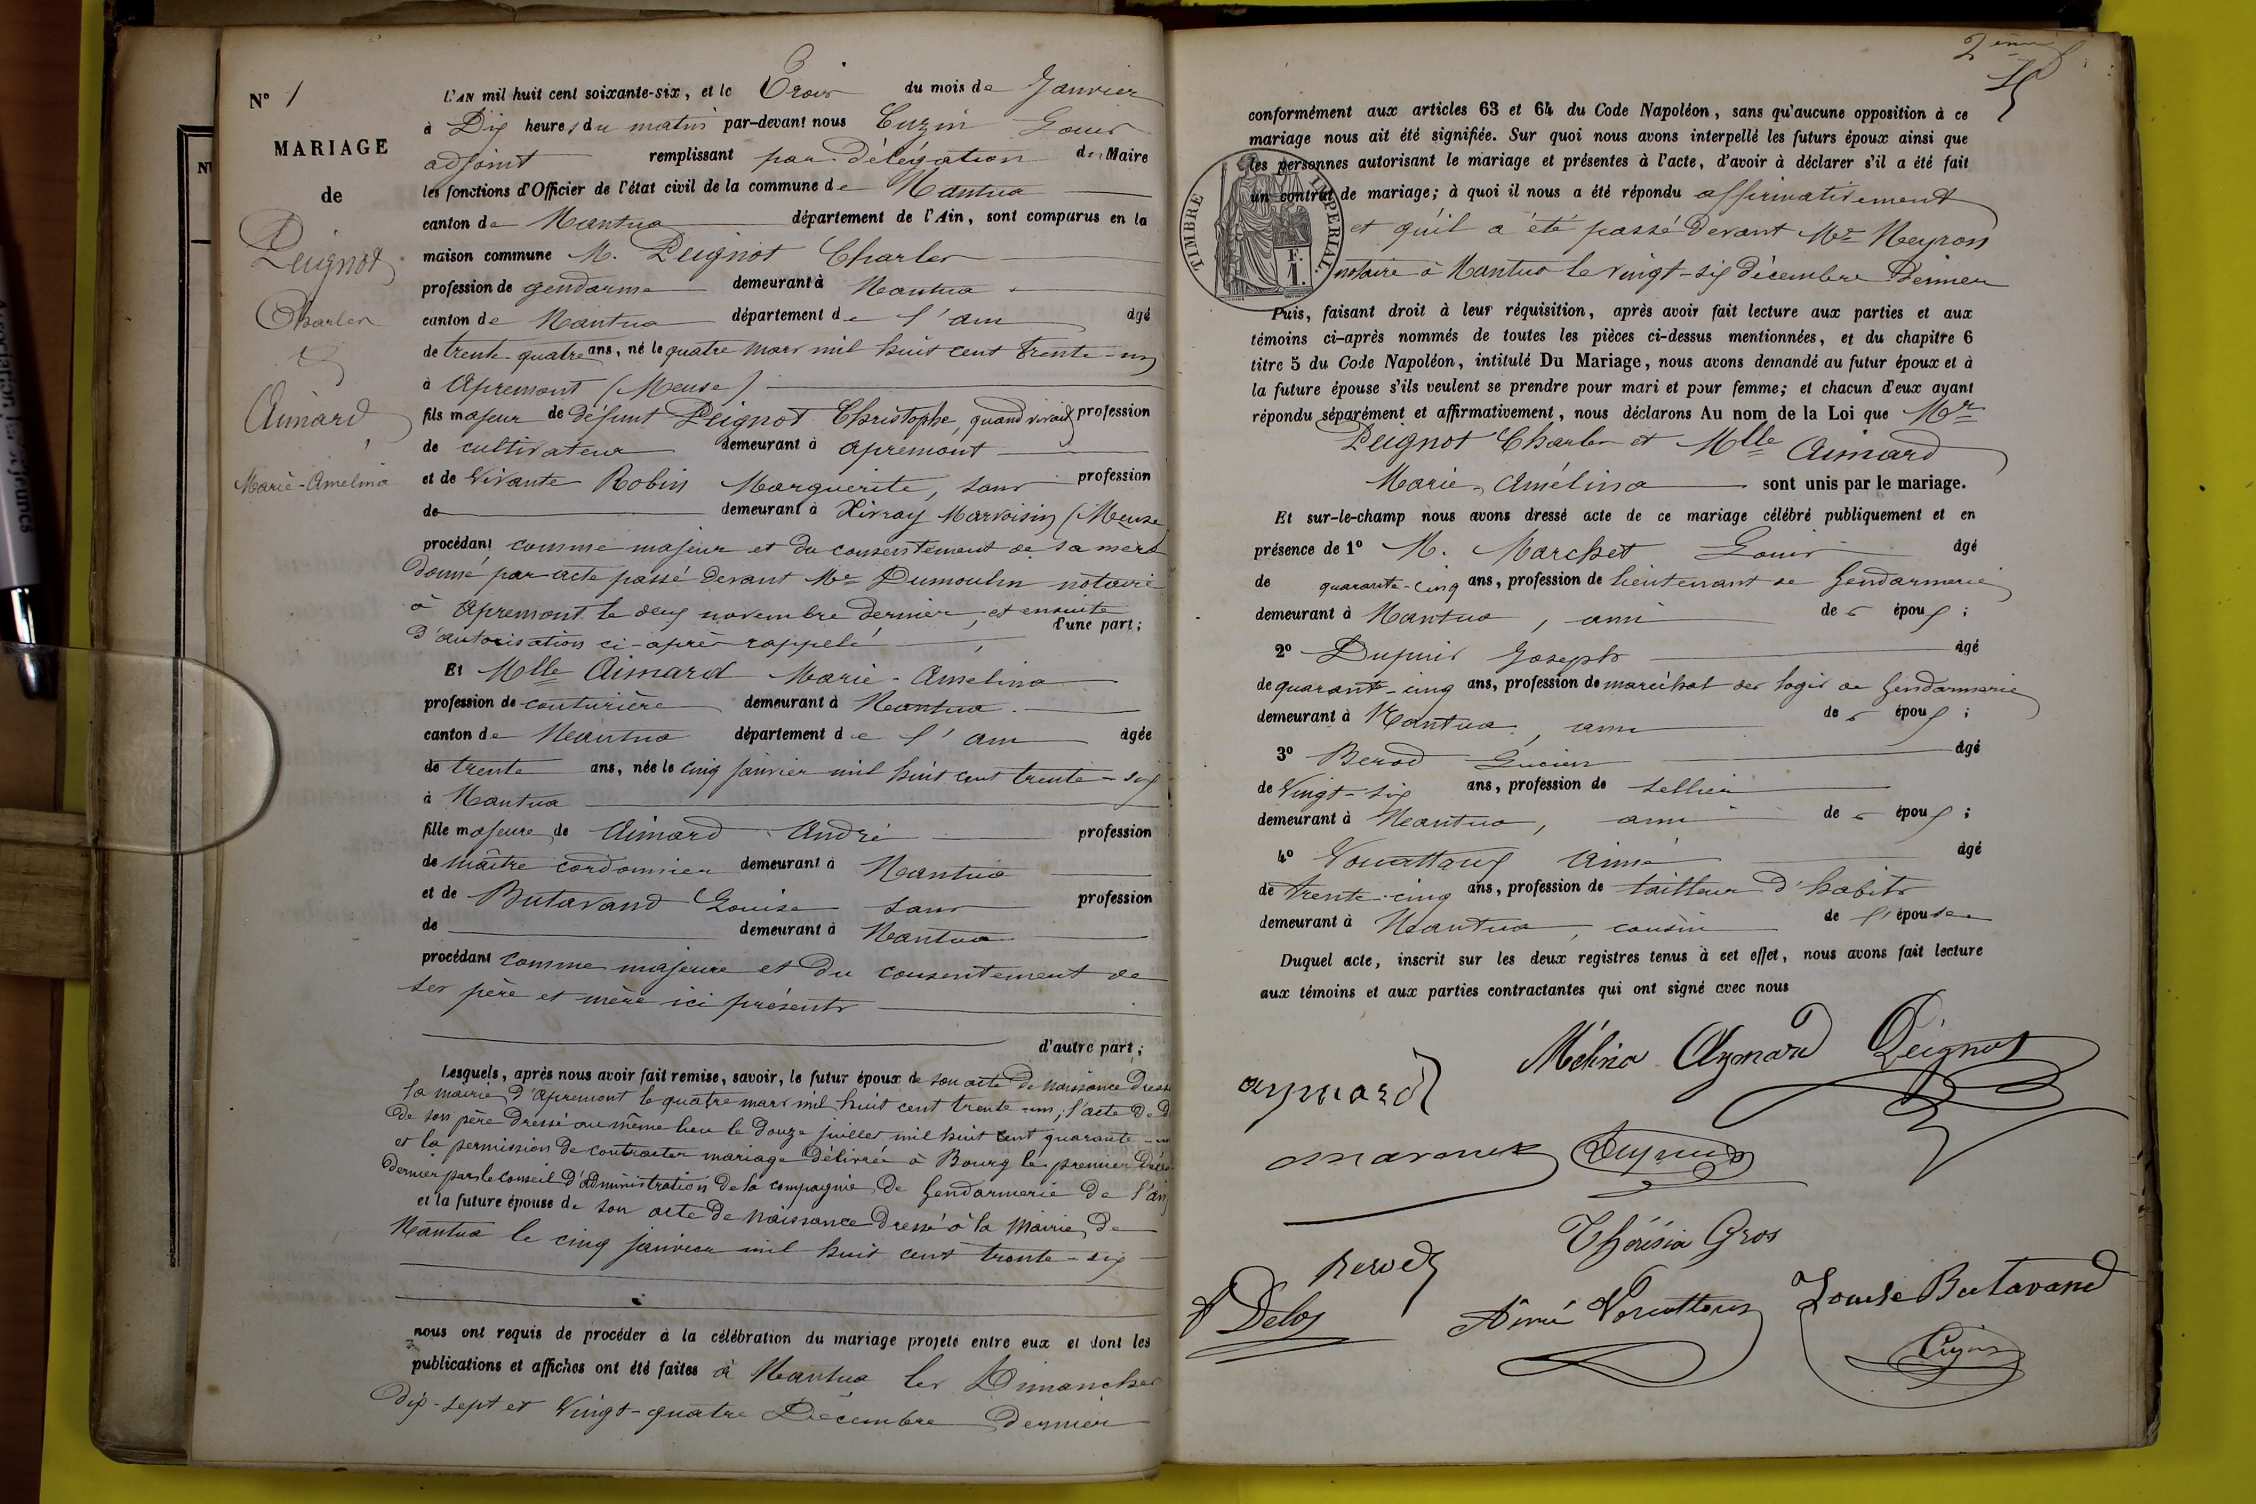 N° 1
MARIAGE
de
Peignot
Charles
&
Aimard
Marie-Amelina
L'AN mil huit cent soixante-six, et le Trois du mois de Janvier
à Dix heures du matin par-devant nous Cuzin Louis
adjoint remplissant par délégation du Maire
les fonctions d'Officier de l'état civil de la commune de Nantua
canton de Nantua département de l'Ain, sont comparus en la
maison commune M. Peignot Charles
profession de gendarme demeurant à Nantua
canton de Nantua département de l'ain âgé
de trente-quatre ans, né le quatre mars mil huit cent trente-un
à Apremont (Meuse)
fils majeur de défunt Peignot Christophe, quand vivait profession
de cultivateur demeurant à apremont
et de vivante Robin Marguerite, sans profession
de demeurant à Xivray Marvoisin (Meuse
procédant comme majeur et du consentement de sa mère
donné par acte passé devant Me Dumoulin notaire
à Apremont le deux novembre dernier, et ensuite
d'autorisation ci-après rappelé d'une part;
Et Mlle Aimard Marie-Amelina
profession de couturière demeurant à Nantua
canton de Nantua département de l'ain âgée
de trente ans, née le cinq janvier mil huit cent trente-six
à Nantua
fille majeure de Aimard André profession
de maître cordonnier demeurant à Nantua
et de Butavand Louise sans profession
de demeurant à Nantua
procédant comme majeure et du consentement de
ses père et mère ici présents
d'autre part;
Lesquels, après nous avoir fait remise, savoir, le futur époux de son acte de naissance dressé
la mairie d'Apremont le quatre mars mil huit cent trente-un; l'acte de d
de son père dressé au même lieu le douze juillet mil huit cent quarante-
et la permission de contracter mariage délivrée à Bourg le premier
dernier par le conseil d'administration de la compagnie de Gendarmerie de l'ain
et la future épouse de son acte de naissance dressé à la Mairie de
Nantua le cinq janvier mil huit cent trente-six
nous ont requis de procéder à la célébration du mariage projeté entre eux et dont les
publications et affiches ont été faites à Nantua les Dimanches
dix-sept et vingt-quatre Décembre dernier
2ème
conformément aux articles 63 et 64 du Code Napoléon, sans qu'aucune opposition à ce
mariage nous ait été signifiée. Sur quoi nous avons interpellé les futurs époux ainsi que
les personnes autorisant le mariage et présentes à l'acte, d'avoir à déclarer s'il a été fait
un contrat de mariage; à quoi il nous a été répondu affirmativement
et qu'il a été passé devant Me Neyron
notaire à Nantua le vingt-six décembre dernier
TIMBRE IMPÉRIAL.
1 F.
Puis, faisant droit à leur réquisition, après avoir fait lecture aux parties et aux
témoins ci-après nommés de toutes les pièces ci-dessus mentionnées, et du chapitre 6
titre 5 du Code Napoléon, intitulé Du Mariage, nous avons demandé au futur époux et à
la future épouse s'ils veulent se prendre pour mari et pour femme; et chacun d'eux ayant
répondu séparément et affirmativement, nous déclarons Au nom de la Loi que Mr
Peignot Charles et Mlle Aimard
Marie-Amélina sont unis par le mariage.
Et sur-le-champ nous avons dressé acte de ce mariage célébré publiquement et en
présence de 1° M. Marchet Louis âgé
de quarante-cinq ans, profession de lieutenant de Gendarmerie
demeurant à Nantua, ami des époux;
2° Dupuis Joseph âgé
de quarante-cinq ans, profession de maréchal des logis de Gendarmerie
demeurant à Nantua, ami des époux;
3° Berod Lucien âgé
de Vingt-six ans, profession de sellier
demeurant à Nantua, ami des époux;
4° Vouattoux Aimé âgé
de trente-cinq ans, profession de tailleur d'habits
demeurant à Nantua, cousin de l'épouse
Duquel acte, inscrit sur les deux registres tenus à cet effet, nous avons fait lecture
aux témoins et aux parties contractantes qui ont signé avec nous
Mélina Aymard Peignot
aymard
Dupuis
Thérésia Gros
Berod
Delos Aimé Vouattoux Louise Butavand
Cuzin